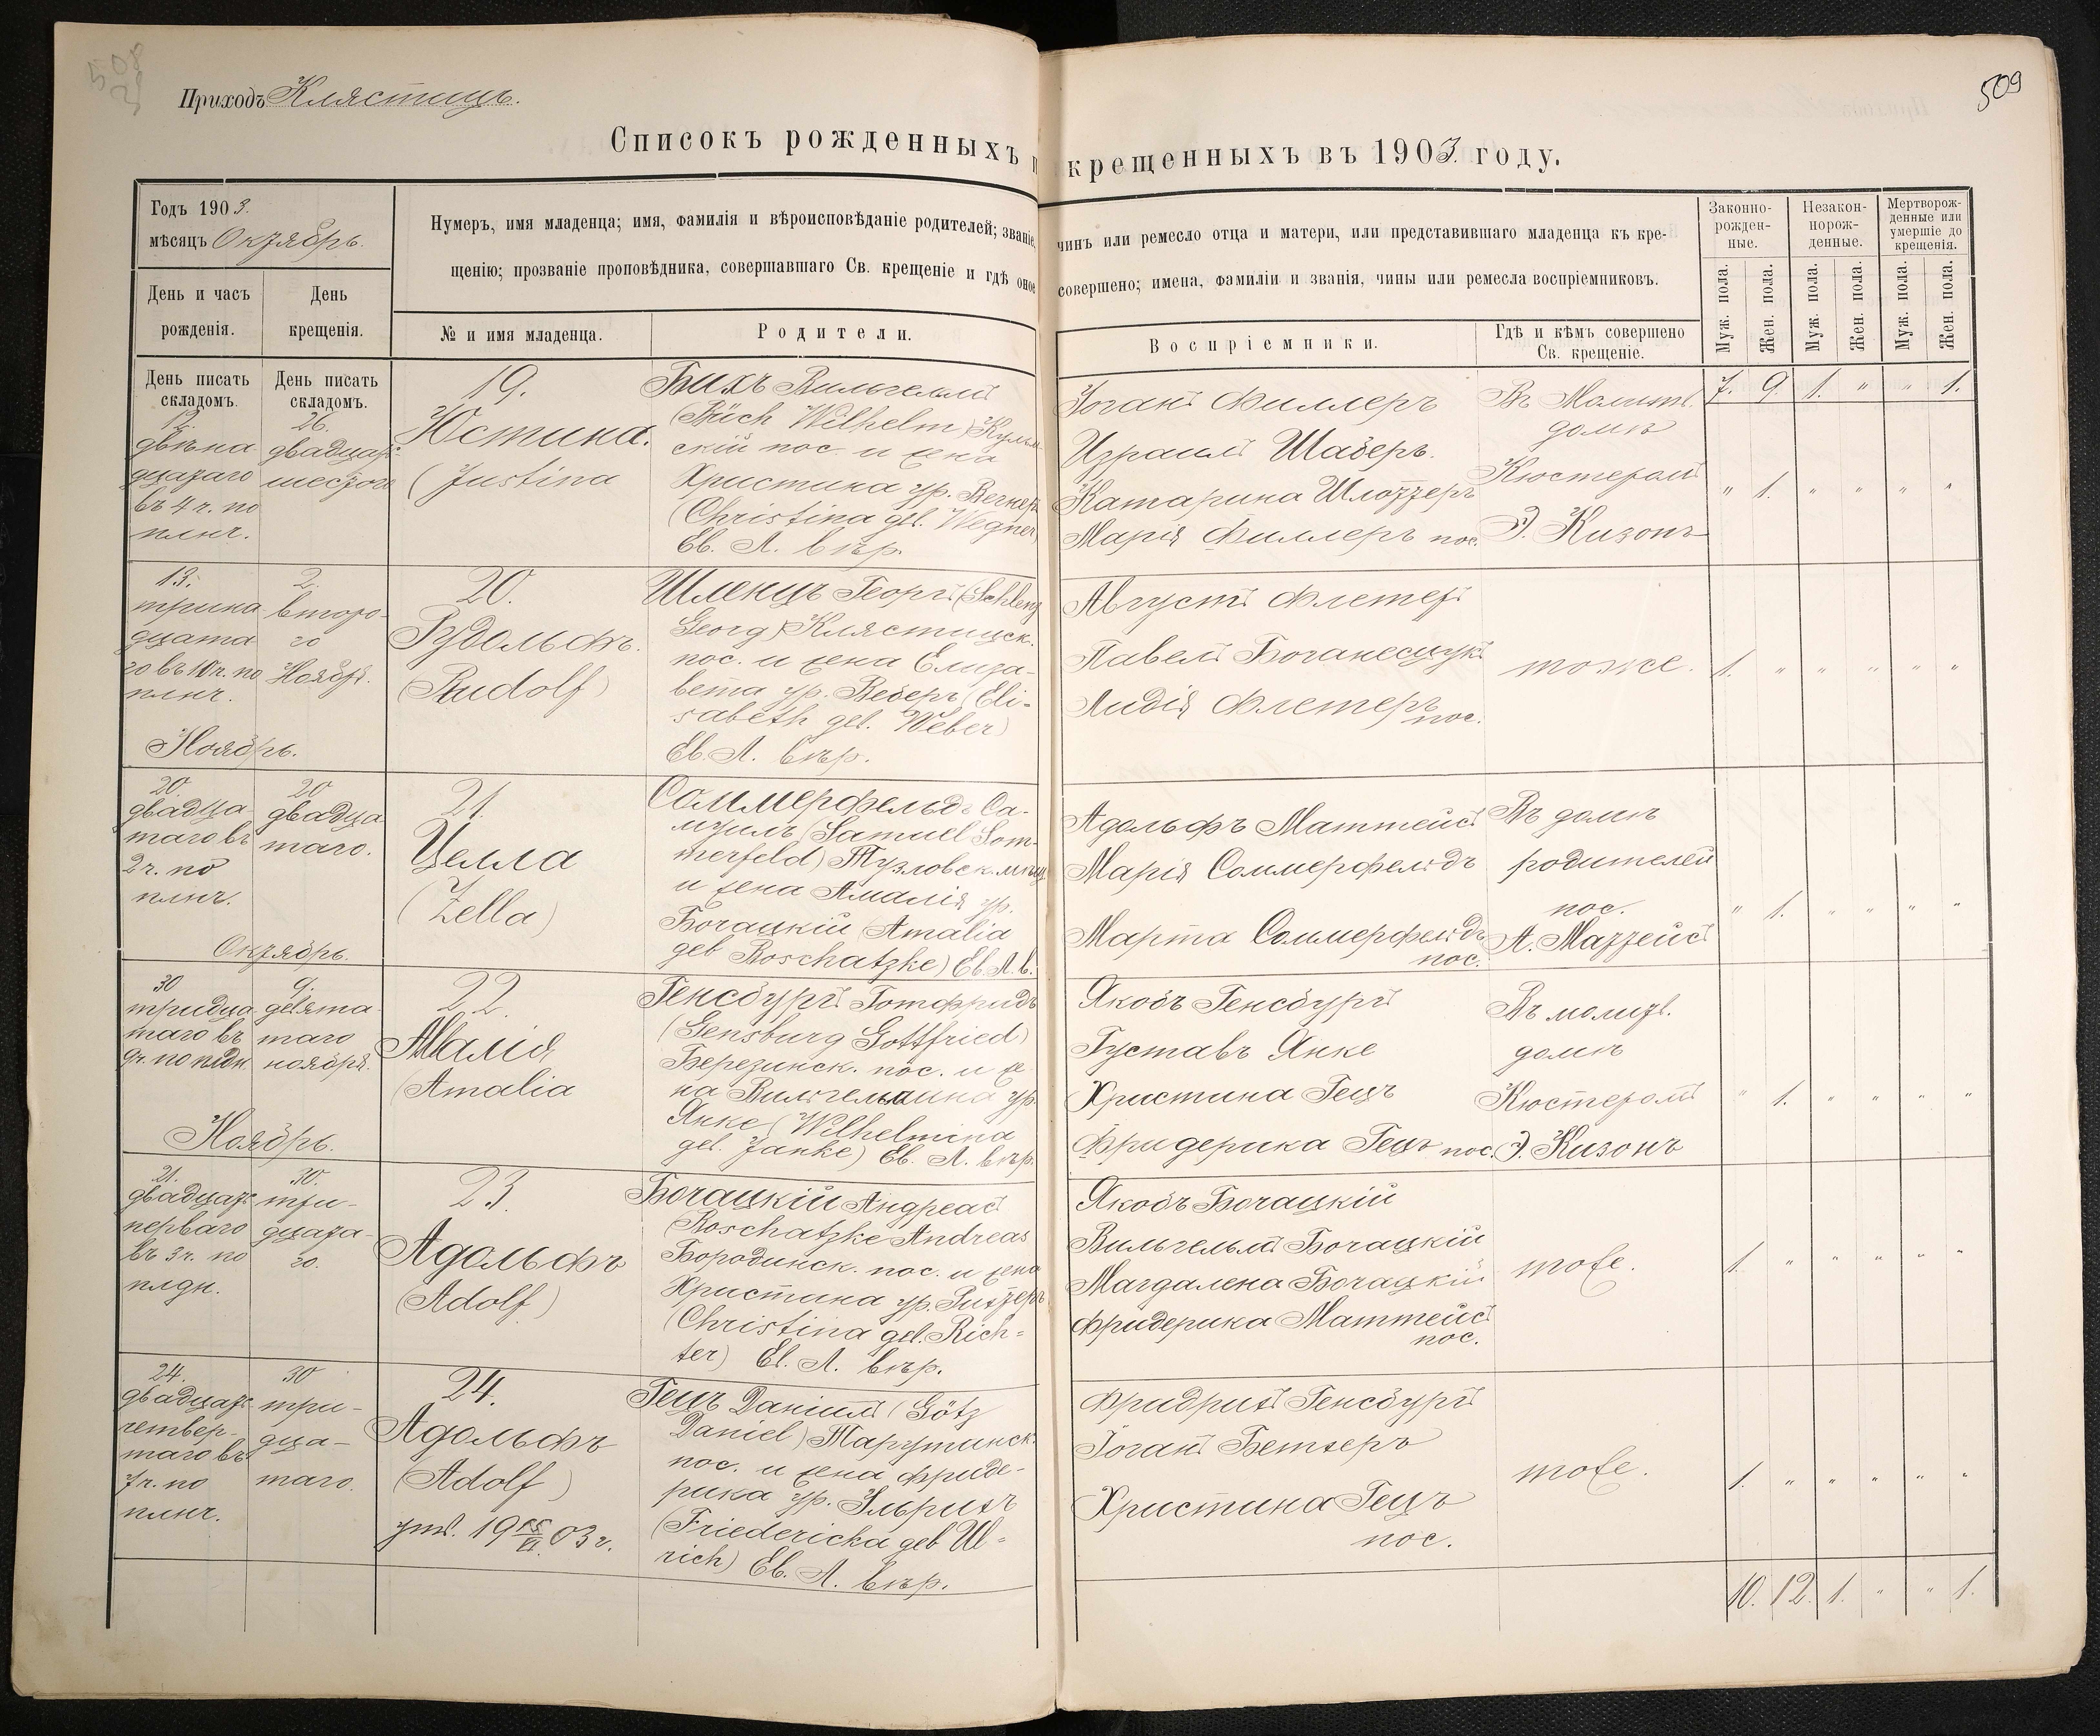 508
509
Приходъ Клястицъ.
Списокъ рожденныхъ и крещенныхъ въ 1903. году.
Годъ 1903.
мѣсяцъ Октябрь.
Нумеръ, имя младенца; имя, фамилія и вѣроисповѣданіе родителей; званіе,
чинъ или ремесло отца и матери, или представившаго младенца къ кре-
щенію; прозваніе проповѣдника, совершавшаго Св. крещеніе и гдѣ оное
совершено; имена, фамиліи и званія, чины или ремесла воспріемниковъ.
Законно-
рожден-
ные.
Незакон-
норож-
денные.
Мертворож-
денные или
умершіе до
крещенія.
День и часъ
рожденія.
День
крещенія.
№ и имя младенца.
Родители.
Воспріемники.
Гдѣ и кѣмъ совершено
Св. крещеніе.
Муж. пола.
Жен. пола.
Муж. пола.
Жен. пола.
Муж. пола.
Жен. пола.
День писать
складомъ.
День писать
складомъ.
7. 9. 1. " " 1.
12.
двѣна
дцатаго
въ 4 ч. по
плнч.
26.
двадцать
шестого
19.
Юстина.
(Justina
Бихъ Вильгельмъ
(Büch Wilhelm) Кульм
скій пос. и жена
Христина ур. Вегнеръ
(Christina geb. Wegner)
Ев. Л. вѣр.
Іоганъ Филлеръ
Израилъ Шаберъ.
Катарина Шлоттеръ
Марія Филлеръ пос.
Въ Молитв.
домѣ
Кюстеромъ
Э. Кизонъ
" 1. " " " "
13.
трина
дцата
го въ 10 ч. по
плнч.
2.
второ-
го
Ноября.
20.
Рудольфъ.
(Rudolf)
Шленцъ Георгъ (Schlenz
Georg) Клястицск.
пос. и жена Елиза-
вета ур. Веберъ (Eli-
sabeth geb. Weber)
Ев. Л. вѣр.
Августъ Флетеръ
Павелъ
Лидія Флетеръ
пос.
тоже.
1. " " " " "
Ноябрь.
20.
двадца
таго въ
2 ч. по
плнч.
20
двадца
таго.
21.
Целла
(Zella)
Соммерфельдъ Са-
муилъ (Samuel Som-
merfeld) Тузловск. мѣщ.
и жена Амалія ур.
Бочацкій (Amalia
geb Boschatzke) Ев. Л. в.
Адольфъ Маттейсъ
Марія Соммерфельдъ
Марта Соммерфельдъ
пос.
Въ домѣ
родителей
пос.
А. Маттейсъ
" 1. " " " "
Октябрь.
30
тридца
таго въ
9 ч. по плдн.
9.
девята
таго
ноября.
22.
Амалія
(Amalia
Генсбургъ Готфридъ
(Gensburg Gottfried)
Березинск. пос. и же
на Вильгельмина ур.
Янке (Wilhelmina
geb. Janke) Ев. Л. вѣр.
Якобъ Генсбургъ
Густавъ Янке
Христина Гецъ
Фридерика Гецъ пос.
Въ молитв.
домѣ
Кюстеромъ
Э. Кизонъ
" 1. " " " "
Ноябрь.
21.
двадцать
перваго
въ 3 ч. по
плдн.
30.
три-
дцата-
го.
23.
Адольфъ
(Adolf)
Бочацкій Андреасъ
(Boschatzke Andreas
Бородинск. пос. и жена
Христина ур. Рихтеръ
(Christina geb. Rich-
ter) Ев. Л. вѣр.
Якобъ Бочацкій
Вильгельмъ Бочацкій
Магдалена Бочацкій
Фридерика Маттейсъ
пос.
тоже.
1. " " " " "
24.
двадцать
четвер-
таго въ
7 ч. по
плнч.
30
три-
дца-
таго.
24.
Адольфъ
(Adolf)
03 г.
Гецъ Даніилъ (Götz
Daniel) Тарутинск.
пос. и жена Фриде-
рика ур. Ульрихъ
(Friedericka geb Ul-
rich) Ев. Л. вѣр.
Фридрихъ Генсбургъ
Іоганъ Бетхеръ
Христина Гецъ
пос.
тоже.
1. " " " " "
10. 12. 1. " " 1.